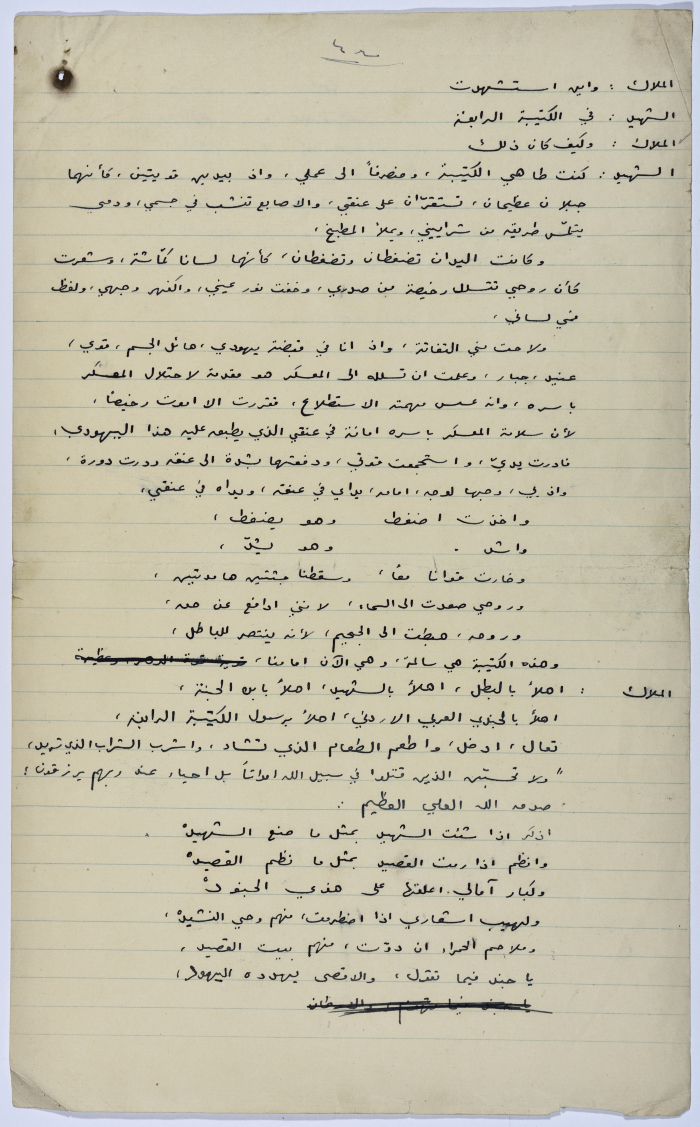 الملاك : واين استشهدت
الشهيد : في الكتيبة الرابعة
الملاك : وكيف كان ذلك
الشهيد : كنت طاهي الكتيبة، ومنصرفاً الى عملي، واذ بيدين قويتين، كأنهما
جبلان عظيمان، تستقرّان على عنقي، والاصابع تنشب في جسمي، ودمي
يتلمّس طريقه من شراييني، ويملأ المطبخ،
وكانت اليدان تضغطان وتضغطان، كأنها لسانا كمّاشة، وشعرت
كأن روحي تتسلل رخيصة من صدري، وخفت نور عيني، واكفهر وجهي، ولفظ
مني لساني،
ولاحت مني التفاتة، واذ انا في قبضة يهودي، هائل الجسم، قوي،
عنيد، جبار، وعلمت ان تسلله الى المعسكر هو مقدمة لاحتلال المعسكر
باسره، وانه مهمته الاستطلاع، فقررت الا اموت رخيصاً،
لأن سلامة المعسكر باسره امانة في عنقي الذي يطبق عليه هذا اليهودي،
فادرت يديّ، واستجمعت قوتي، ودفعتها بشدة الى عنقه ودرت دورة،
واذ بي، وجها لوجه، امامه، يداي في عنقه، ويداه في عنقي،
واخذت اضغط وهو يضغط،
واشد . وهو يشدّ،
وخارت قوانا معاً، وسقطنا جثتين هامدتين،
وروحي صعدت الى السماء، لانني ادافع عن حق،
وروحه، هبطت الى الجحيم، لأنه ينتصر للباطل،
وهذه الكتيبة هي سالمة، وهي الآن امامنا،
الملاك : اهلاً بالبطل، اهلاً بالشهيد، اهلاً بابن الجنة،
اهلاً بالجندي العربي الاردني، اهلاً برسول الكتيبة الرابعة،
تعال، ادخل، واطعم الطعام الذي تشاء، واشرب الشراب الذي تريد،
"ولا تحسبن الذين قتلوا في سبيل الله امواتاً بل احياء عند ربهم يرزقون"
صدق الله العلي العظيم :
اذكر اذا شئت الشهيد بمثل ما صنع الشهيدْ
وانظم اذا رمت القصيد بمثل ما نظم القصيدْ
وكبار آمالي. اعلقها على هذي الجنودْ
ولهيب اشعاري اذا اضطرمت، منهم وحي النشيدْ،
وملاحم الحمراء ان دوّت، منهم بيت القصيد،
يا جند فيما نقول، والاقصى يهوده اليهود،